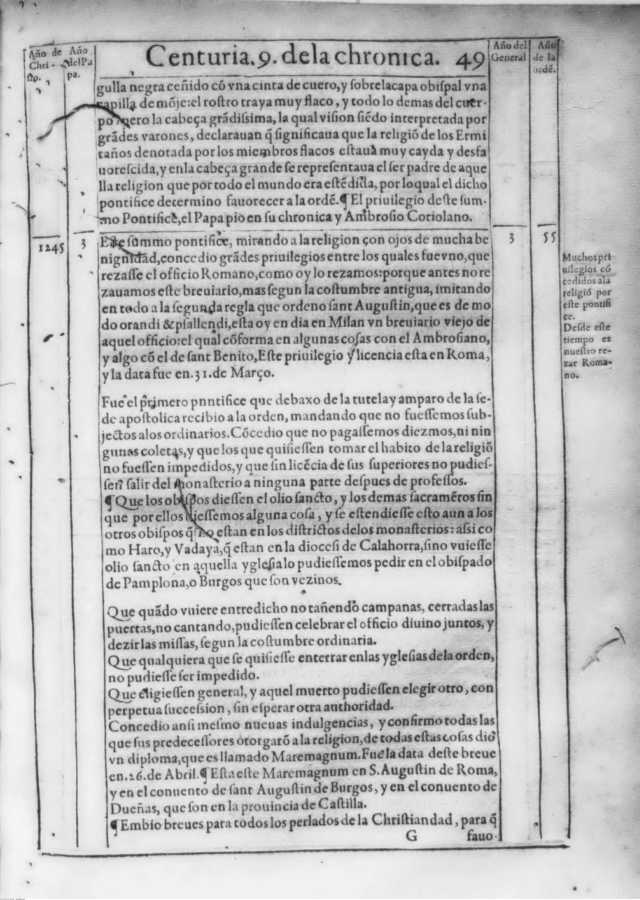 Año de Christo.
Año del Papa.
Centuria.9. dela chronica. 49
Año del General
Año de la ordẽ.
gulla negra ceñido cõ vna cinta de cuero, y sobre la capa obispal vna
capilla de mõje: el rostro traya muy flaco, y todo lo demas del cuer-
po, pero la cabeça grãdissima, la qual vision siẽdo interpretada por
grãdes varones, declarauan q̃ significaua que la religiõ de los Ermi
taños denotada por los miembros flacos estauã muy cayda y desfa
uorescida, y enla cabeça grande se representaua el ser padre de aque
lla religion que por todo el mundo era estẽdida, por lo qual el dicho
pontifice determino fauorecer a la ordẽ. ¶ El priuilegio deste sum-
mo Pontifice, el Papa pio en su chronica y Ambrosio Coriolano.
1245 3 Este summo pontifice, mirando a la religion con ojos de mucha be 3 55
nignidad, concedio grãdes priuilegios entre los quales fue vno, que
rezasse el officio Romano, como oy lo rezamos: porque antes no re
zauamos este breuiario, mas segun la costumbre antigua, imitando
en todo a la segunda regla que ordeno sant Augustin, que es de mo
do orandi & psallendi, esta oy en dia en Milan vn breuiario viejo de
aquel officio: el qual cõforma en algunas cosas con el Ambrosiano,
y algo cõ el de sant Benito, Este priuilegio y licencia esta en Roma,
y la data fue en.31.de Março.
Muchos pri
uilegios cõ
cedidos ala
religiõ por
este pontifi
ce.
Desde este
tiempo es
nuestro re-
zar Roma-
no.
Fue el primero pnntifice que debaxo de la tutela y amparo de la se-
de apostolica recibio a la orden, mandando que no fuessemos sub-
jectos alos ordinarios. Cõcedio que no pagassemos diezmos, ni nin
gunas coletas, y que los que quisiessen tomar el habito de la religiõ
no fuessen impedidos, y que sin licẽcia de sus superiores no pudies-
sen salir del monasterio a ninguna parte despues de professos.
¶ Que los obispos diessen el olio sancto, y los demas sacramẽtos sin
que por ellos diessemos alguna cosa, y se estendiesse esto aun a los
otros obispos q̃ no estan en los districtos delos monasterios: assi co
mo Haro, y Vadaya, q̃ estan en la diocesi de Calahorra, sino vuiesse
olio sancto en aquella yglesia lo pudiessemos pedir en el obispado
de Pamplona, o Burgos que son vezinos.
Que quãdo vuiere entredicho no tañendo campanas, cerradas las
puertas, no cantando, pudiessen celebrar el officio diuino juntos, y
dezir las missas, segun la costumbre ordinaria.
Que qualquiera que se quisiesse enterrar enlas yglesias dela orden,
no pudiesse ser impedido.
Que eligiessen general, y aquel muerto pudiessen elegir otro, con
perpetua succession, sin esperar otra authoridad.
Concedio ansi mesmo nueuas indulgencias, y confirmo todas las
que sus predecessores otorgarõ a la religion, de todas estas cosas dio
vn diploma, que es llamado Maremagnum. Fue la data deste breue
en.26.de Abril. ¶ Esta este Maremagnum en S. Augustin de Roma,
y en el conuento de sant Augustin de Burgos, y en el conuento de
Dueñas, que son en la prouincia de Castilla.
¶ Embio breues para todos los perlados de la Christiandad, para q̃
G fauo-